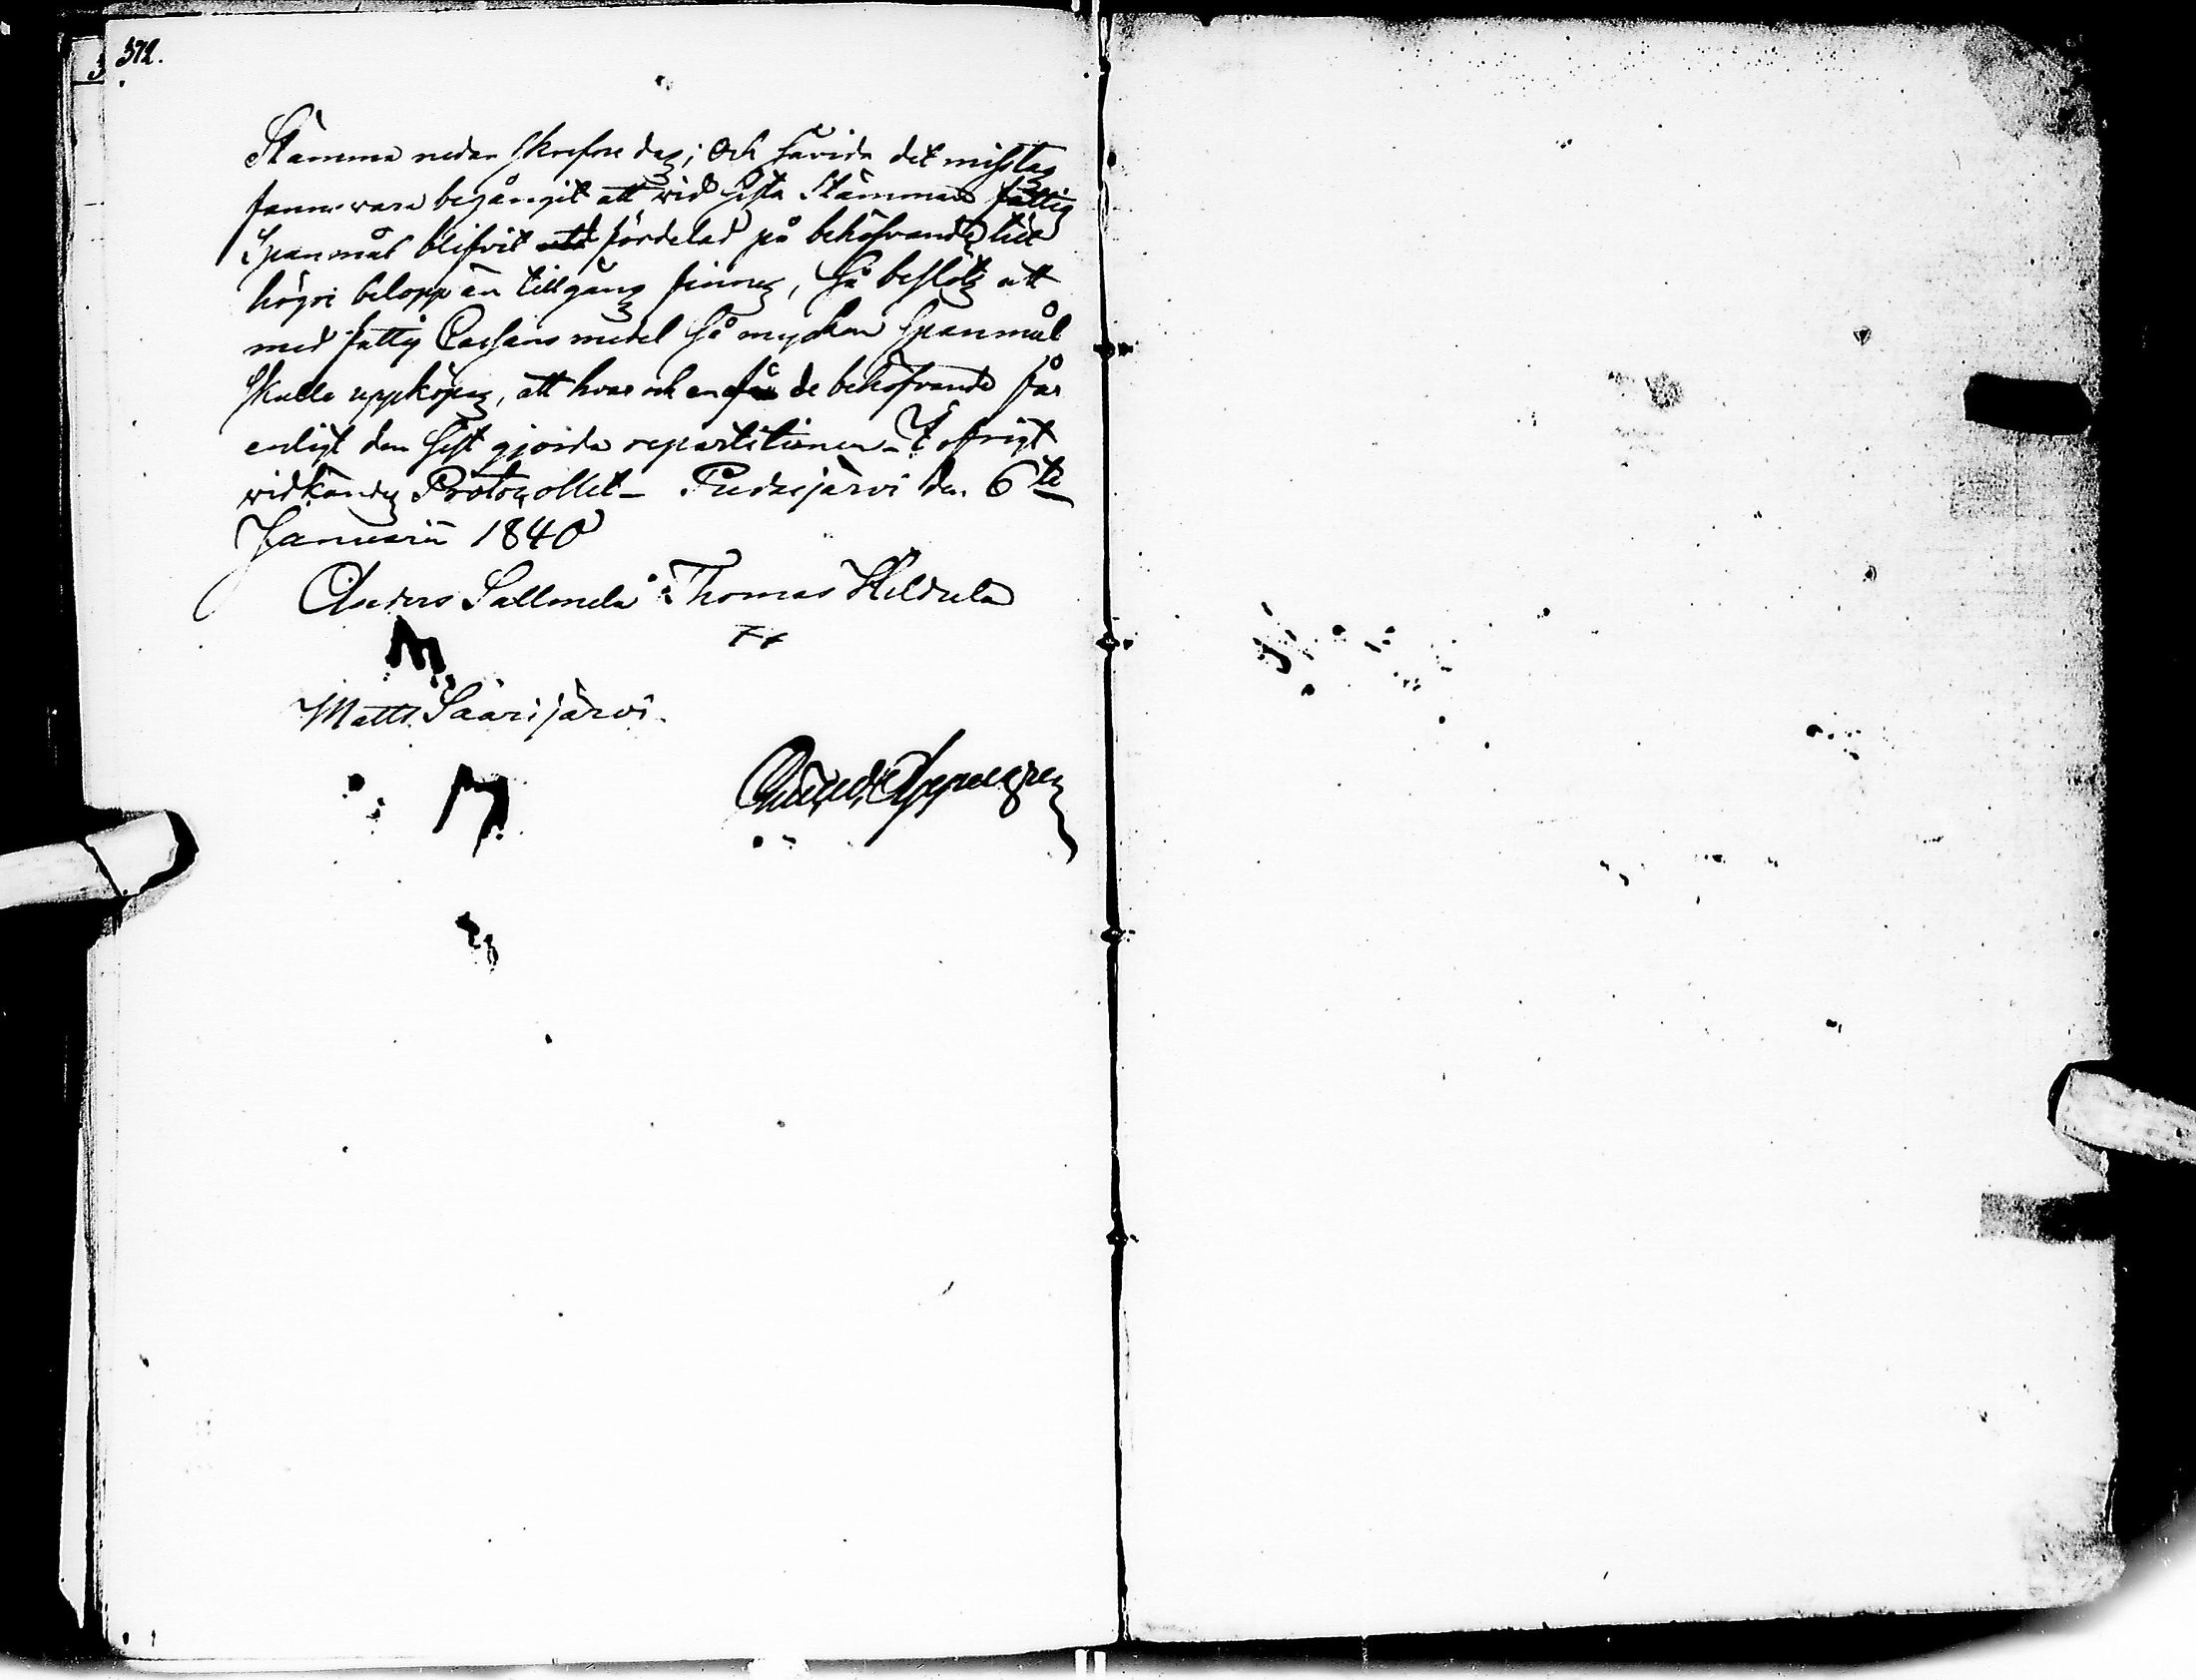 372.
Stämma nedan skrefne dag; och såvida det misstag
fanns vara begångit att wid sista Stämman fattig
Spanmål blifvit fördelad på behöfvande till
högre belopp än tillgång finnes, så beslöts att
med fattig Cassans medel så mycken spanmål
skulle uppköpas, att hvar och en de behöfvande får
enligt den sist gjorda repartitionen. I öfrigt
widkändes Protocollet – Pudasjärvi den 6te
Januarii 1840
Anders Sallmela Thomas Hildula
Matts Saarijärvi.
Appelgren